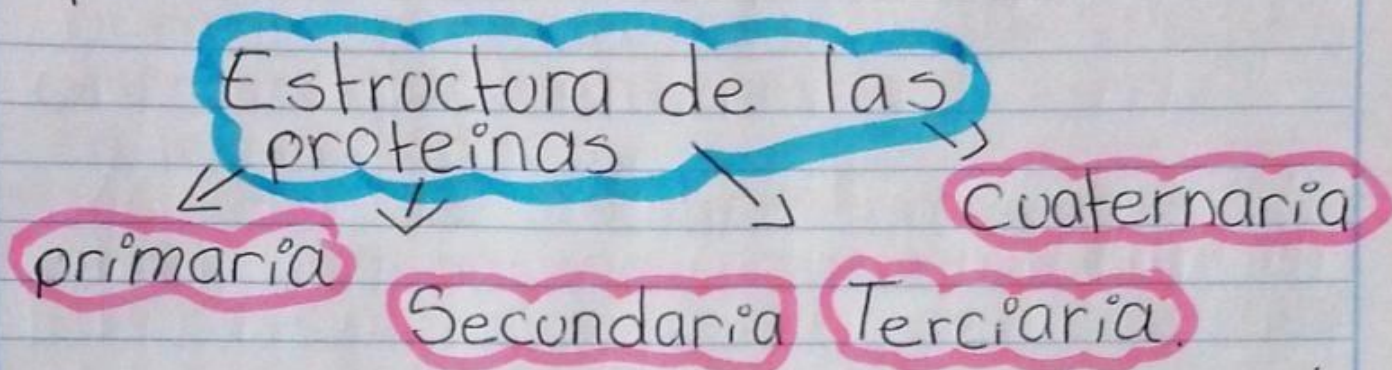 Estructura de las
proteinas
primaria
Secundaria
Terciaria.
Cuaternaria